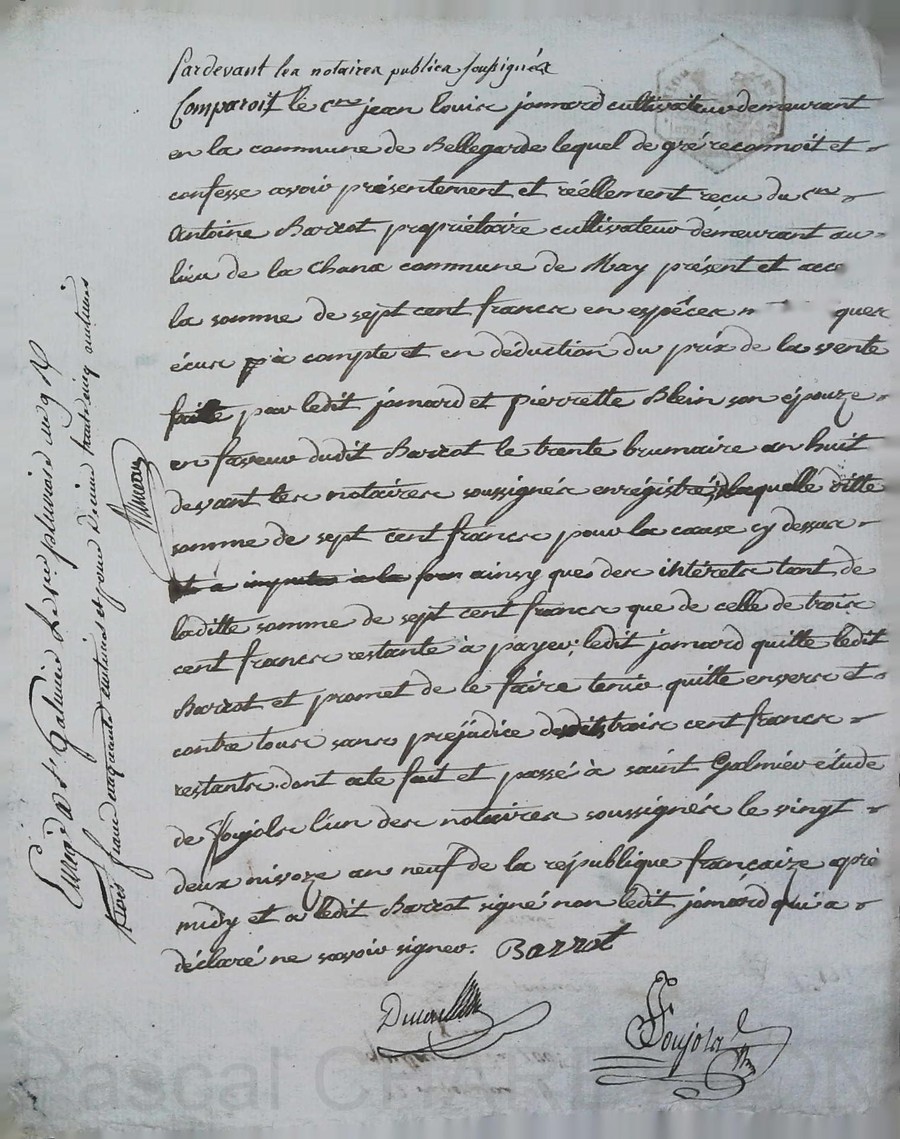 Pardevant les notaires publics soussignés
Comparoit le cen jean louis jomard cultivateur demeurant
en la commune de Bellegarde lequel de gré reconnoit et
confesse avoir présentement et réellement reçu du cen
Antoine Barrot propriétaire cultivateur démeurant au
lieu de la Chana commune de May présent et acc
la somme de sept cent francs en espêces m ques
écus à compte et en déduction du prix de la vente
faitte par ledit jomard et pierrette Blein son épouze
en faveur dudit Barrot le trente brumaire an huit
devant les notaires soussignés enrégistré, laquelle ditte
somme de sept cent francs pour la cause cy dessus
et a imputer à la ainsy que des intérets tant de
laditte somme de sept cent francs que de celle de trois
cent francs restante à payer; ledit jomard quitte ledit
Barrot et promet de le faire tenir quitte envers et
contre tous sans préjudice desdits trois cent francs
restants. dont acte fait et passé à saint Galmier étude
de Foujols l'un des notaires soussignés le vingt
deux nivoze an neuf de la république françaize aprè
midy et a ledit Barrot signé non ledit jomard qui a
déclaré ne savoir signer. Barrot
Foujols
Enregé à St Galmier Le pluviose an 9
trois francs cinquante centimes et pour Décime trente cinq centimes
Pascal